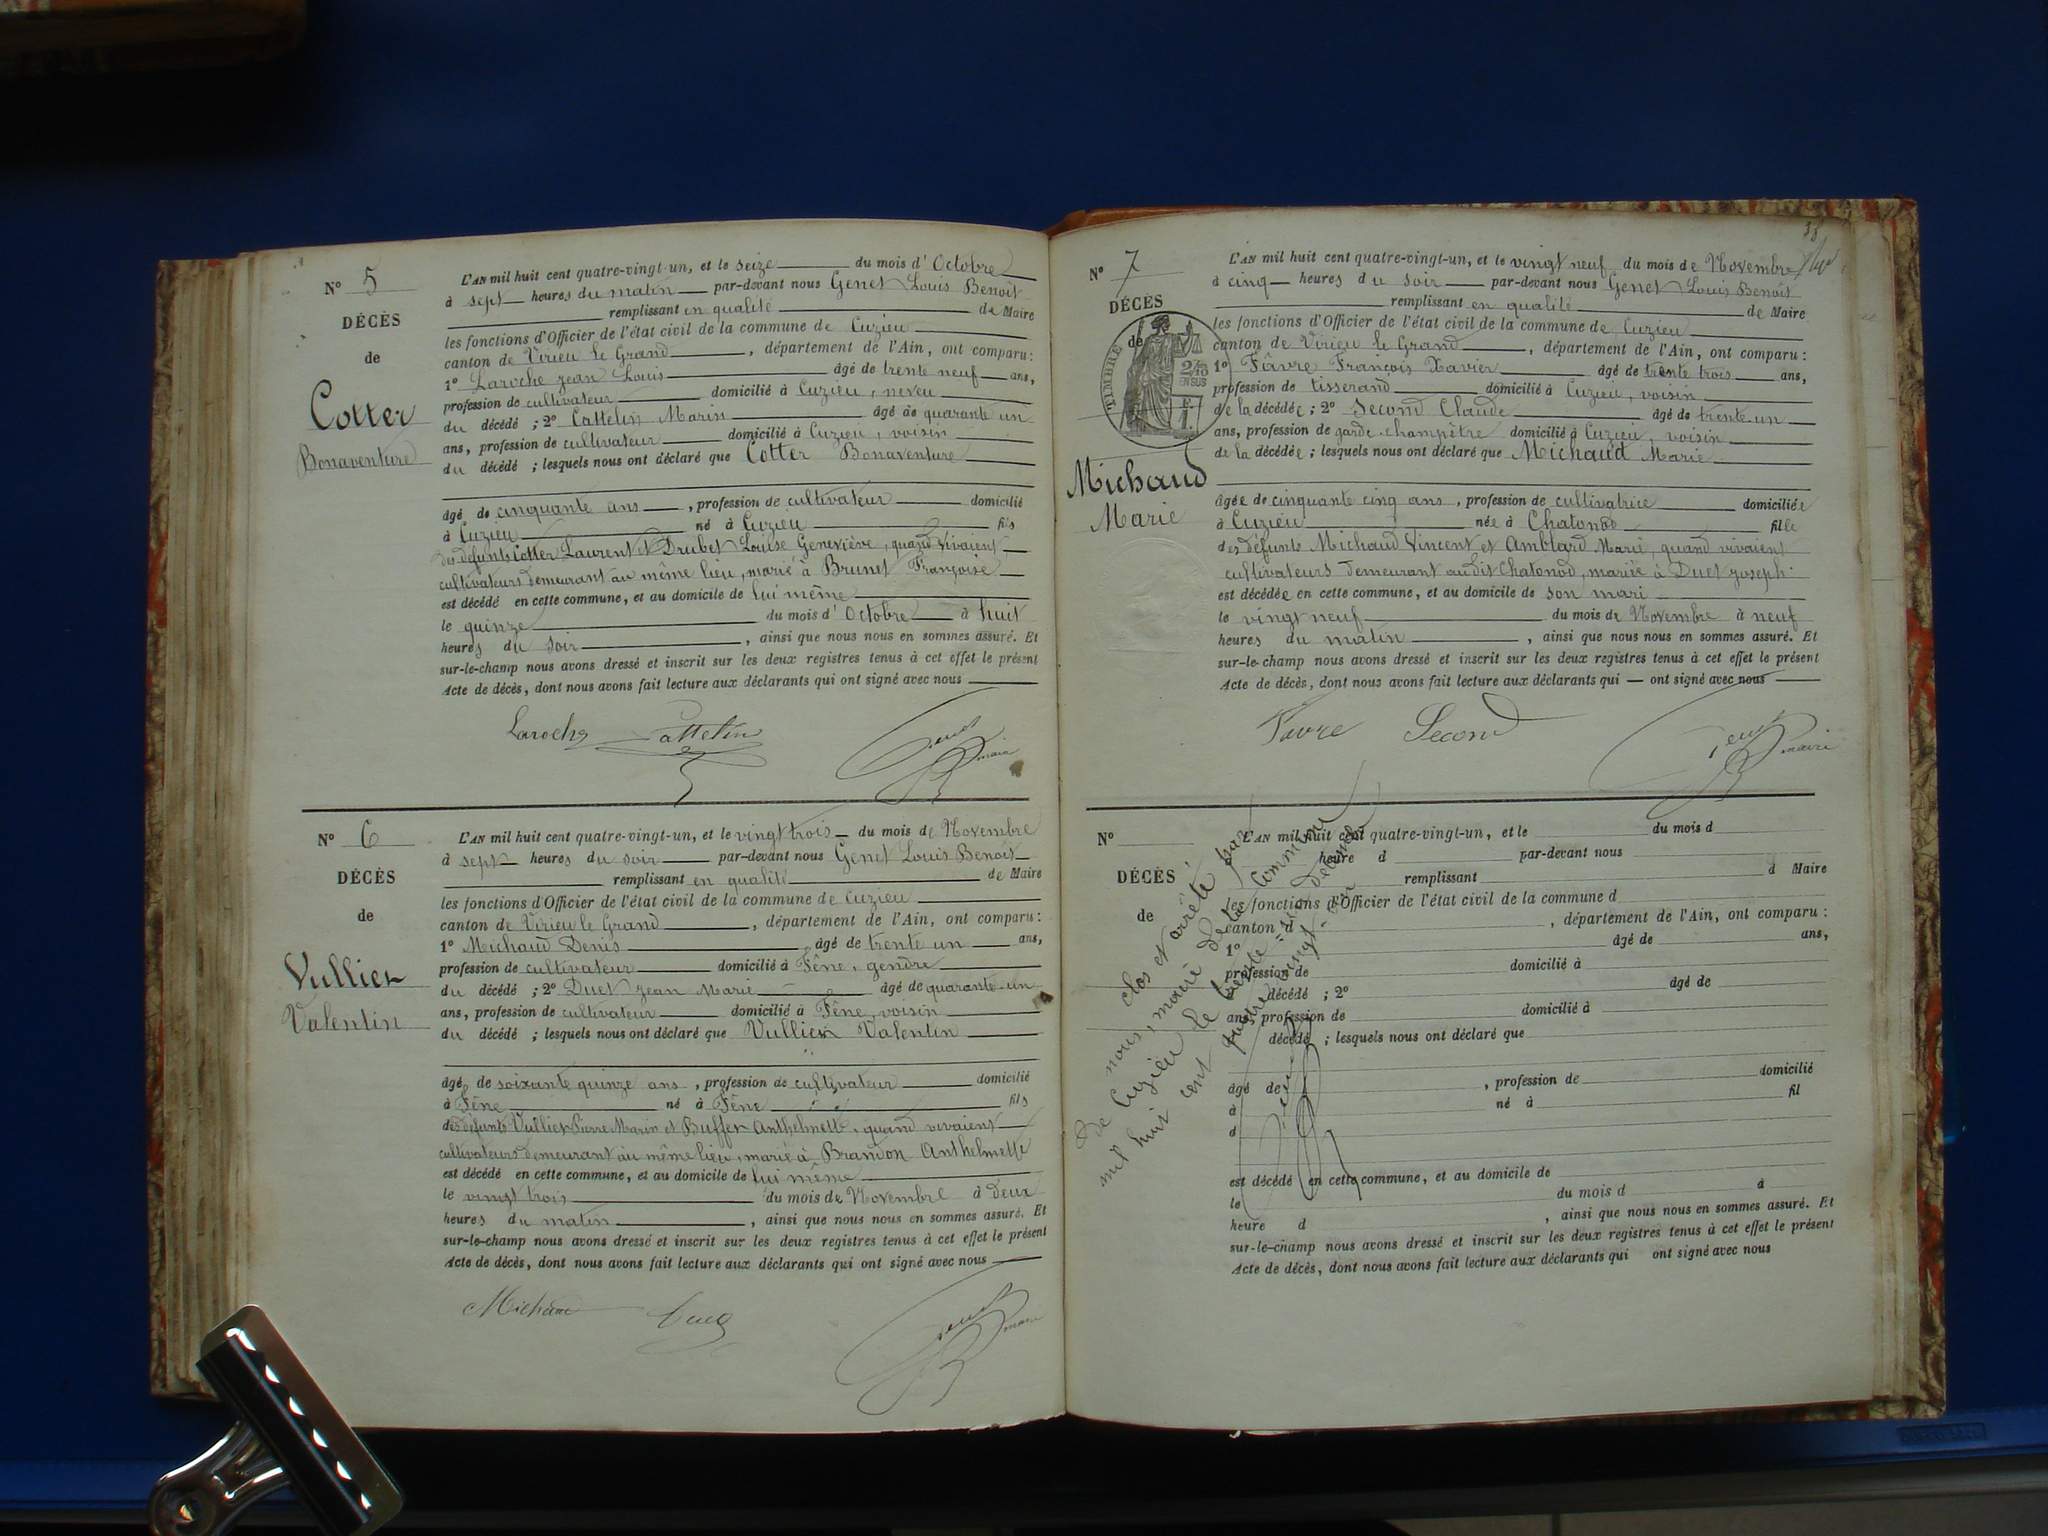 N° 5
DÉCÈS
de
Cotter
Bonaventure
L'AN mil huit cent quatre-vingt-un, et le seize du mois d'Octobre
à sept heures du matin par-devant nous Genet Louis Benoit
remplissant en qualité de Maire
les fonctions d'Officier de l'état civil de la commune de Cuzieu
canton de Virieu le Grand, département de l'Ain, ont comparu:
1° Laroche jean Louis âgé de trente neuf ans,
profession de cultivateur domicilié à Cuzieu, neveu
du décédé ; 2° Cattelin Marin âgé de quarante un
ans, profession de cultivateur domicilié à Cuzieu, voisin
du décédé ; lesquels nous ont déclaré que Cotter Bonaventure
âgé de cinquante ans, profession de cultivateur domicilié
à Cuzieu né à Cuzieu fils
des défunts Cotter Laurent et Drubet Louise Geneviève, quand vivaient
cultivateurs demeurant au même lieu, marié à Brunet Françoise
est décédé en cette commune, et au domicile de lui même
le quinze du mois d'Octobre à huit
heures du soir, ainsi que nous nous en sommes assuré. Et
sur-le-champ nous avons dressé et inscrit sur les deux registres tenus à cet effet le présent
Acte de décès, dont nous avons fait lecture aux déclarants qui ont signé avec nous
Laroche Cattelin Genet maire
N° 6
DÉCÈS
de
Vullier
Valentin
L'AN mil huit cent quatre-vingt-un, et le vingt trois du mois de Novembre
à sept heures du soir par-devant nous Genet Louis Benoit
remplissant en qualité de Maire
les fonctions d'Officier de l'état civil de la commune de Cuzieu
canton de Virieu le Grand, département de l'Ain, ont comparu:
1° Michaud Denis âgé de trente un ans,
profession de cultivateur domicilié à Fêne, gendre
du décédé ; 2° Duet jean Marie âgé de quarante-un
ans, profession de cultivateur domicilié à Fêne, voisin
du décédé ; lesquels nous ont déclaré que Vullier Valentin
âgé de soixante quinze ans, profession de cultivateur domicilié
à Fêne né à Fêne fils
des défunts Vullier Pierre Marin et Buffet Anthelmette, quand vivaient
cultivateurs demeurant au même lieu, marié à Anthelmette
est décédé en cette commune, et au domicile de lui même
le vingt trois du mois de Novembre à deux
heures du matin, ainsi que nous nous en sommes assuré. Et
sur-le-champ nous avons dressé et inscrit sur les deux registres tenus à cet effet le présent
Acte de décès, dont nous avons fait lecture aux déclarants qui ont signé avec nous
Michaud Duet Genet maire
N° 7
DÉCÈS
de
TIMBRE
2/10 EN SUS
F. 1.
Michaud
Marie
L'AN mil huit cent quatre-vingt-un, et le vingt neuf du mois de Novembre
à cinq heures du soir par-devant nous Genet Louis Benoit
remplissant en qualité de Maire
les fonctions d'Officier de l'état civil de la commune de Cuzieu
canton de Virieu le Grand, département de l'Ain, ont comparu:
1° Fâvre François Xavier âgé de trente trois ans,
profession de tisserand domicilié à Cuzieu, voisin
de la décédée ; 2° Second Claude âgé de trente-un
ans, profession de garde-champêtre domicilié à Cuzieu, voisin
de la décédée ; lesquels nous ont déclaré que Michaud Marie
âgée de cinquante cinq ans, profession de cultivatrice domiciliée
à Cuzieu née à Chatonod fille
des défunts Michaud Vincent et Amblard Marie, quand vivaient
cultivateurs demeurant audit Chatonod, mariée à Duet joseph
est décédée en cette commune, et au domicile de son mari
le vingt neuf du mois de Novembre à neuf
heures du matin, ainsi que nous nous en sommes assuré. Et
sur-le-champ nous avons dressé et inscrit sur les deux registres tenus à cet effet le présent
Acte de décès, dont nous avons fait lecture aux déclarants qui — ont signé avec nous
Favre Second Genet maire
N°
DÉCÈS
de
L'AN mil huit cent quatre-vingt-un, et le du mois d
heure d par-devant nous
remplissant d Maire
les fonctions d'Officier de l'état civil de la commune d
canton d, département de l'Ain, ont comparu:
1° âgé de ans,
profession de domicilié à
décédé ; 2° âgé de
ans, profession de domicilié à
décédé ; lesquels nous ont déclaré que
âgé de, profession de domicilié
à né à fil
d
est décédé en cette commune, et au domicile de
le du mois d à
heure d, ainsi que nous nous en sommes assuré. Et
sur-le-champ nous avons dressé et inscrit sur les deux registres tenus à cet effet le présent
Acte de décès, dont nous avons fait lecture aux déclarants qui ont signé avec nous
clos et arrêté par
nous, maire de la commune
de Cuzieu le trente-un décembre
mil huit cent quatre vingt-un
Genet